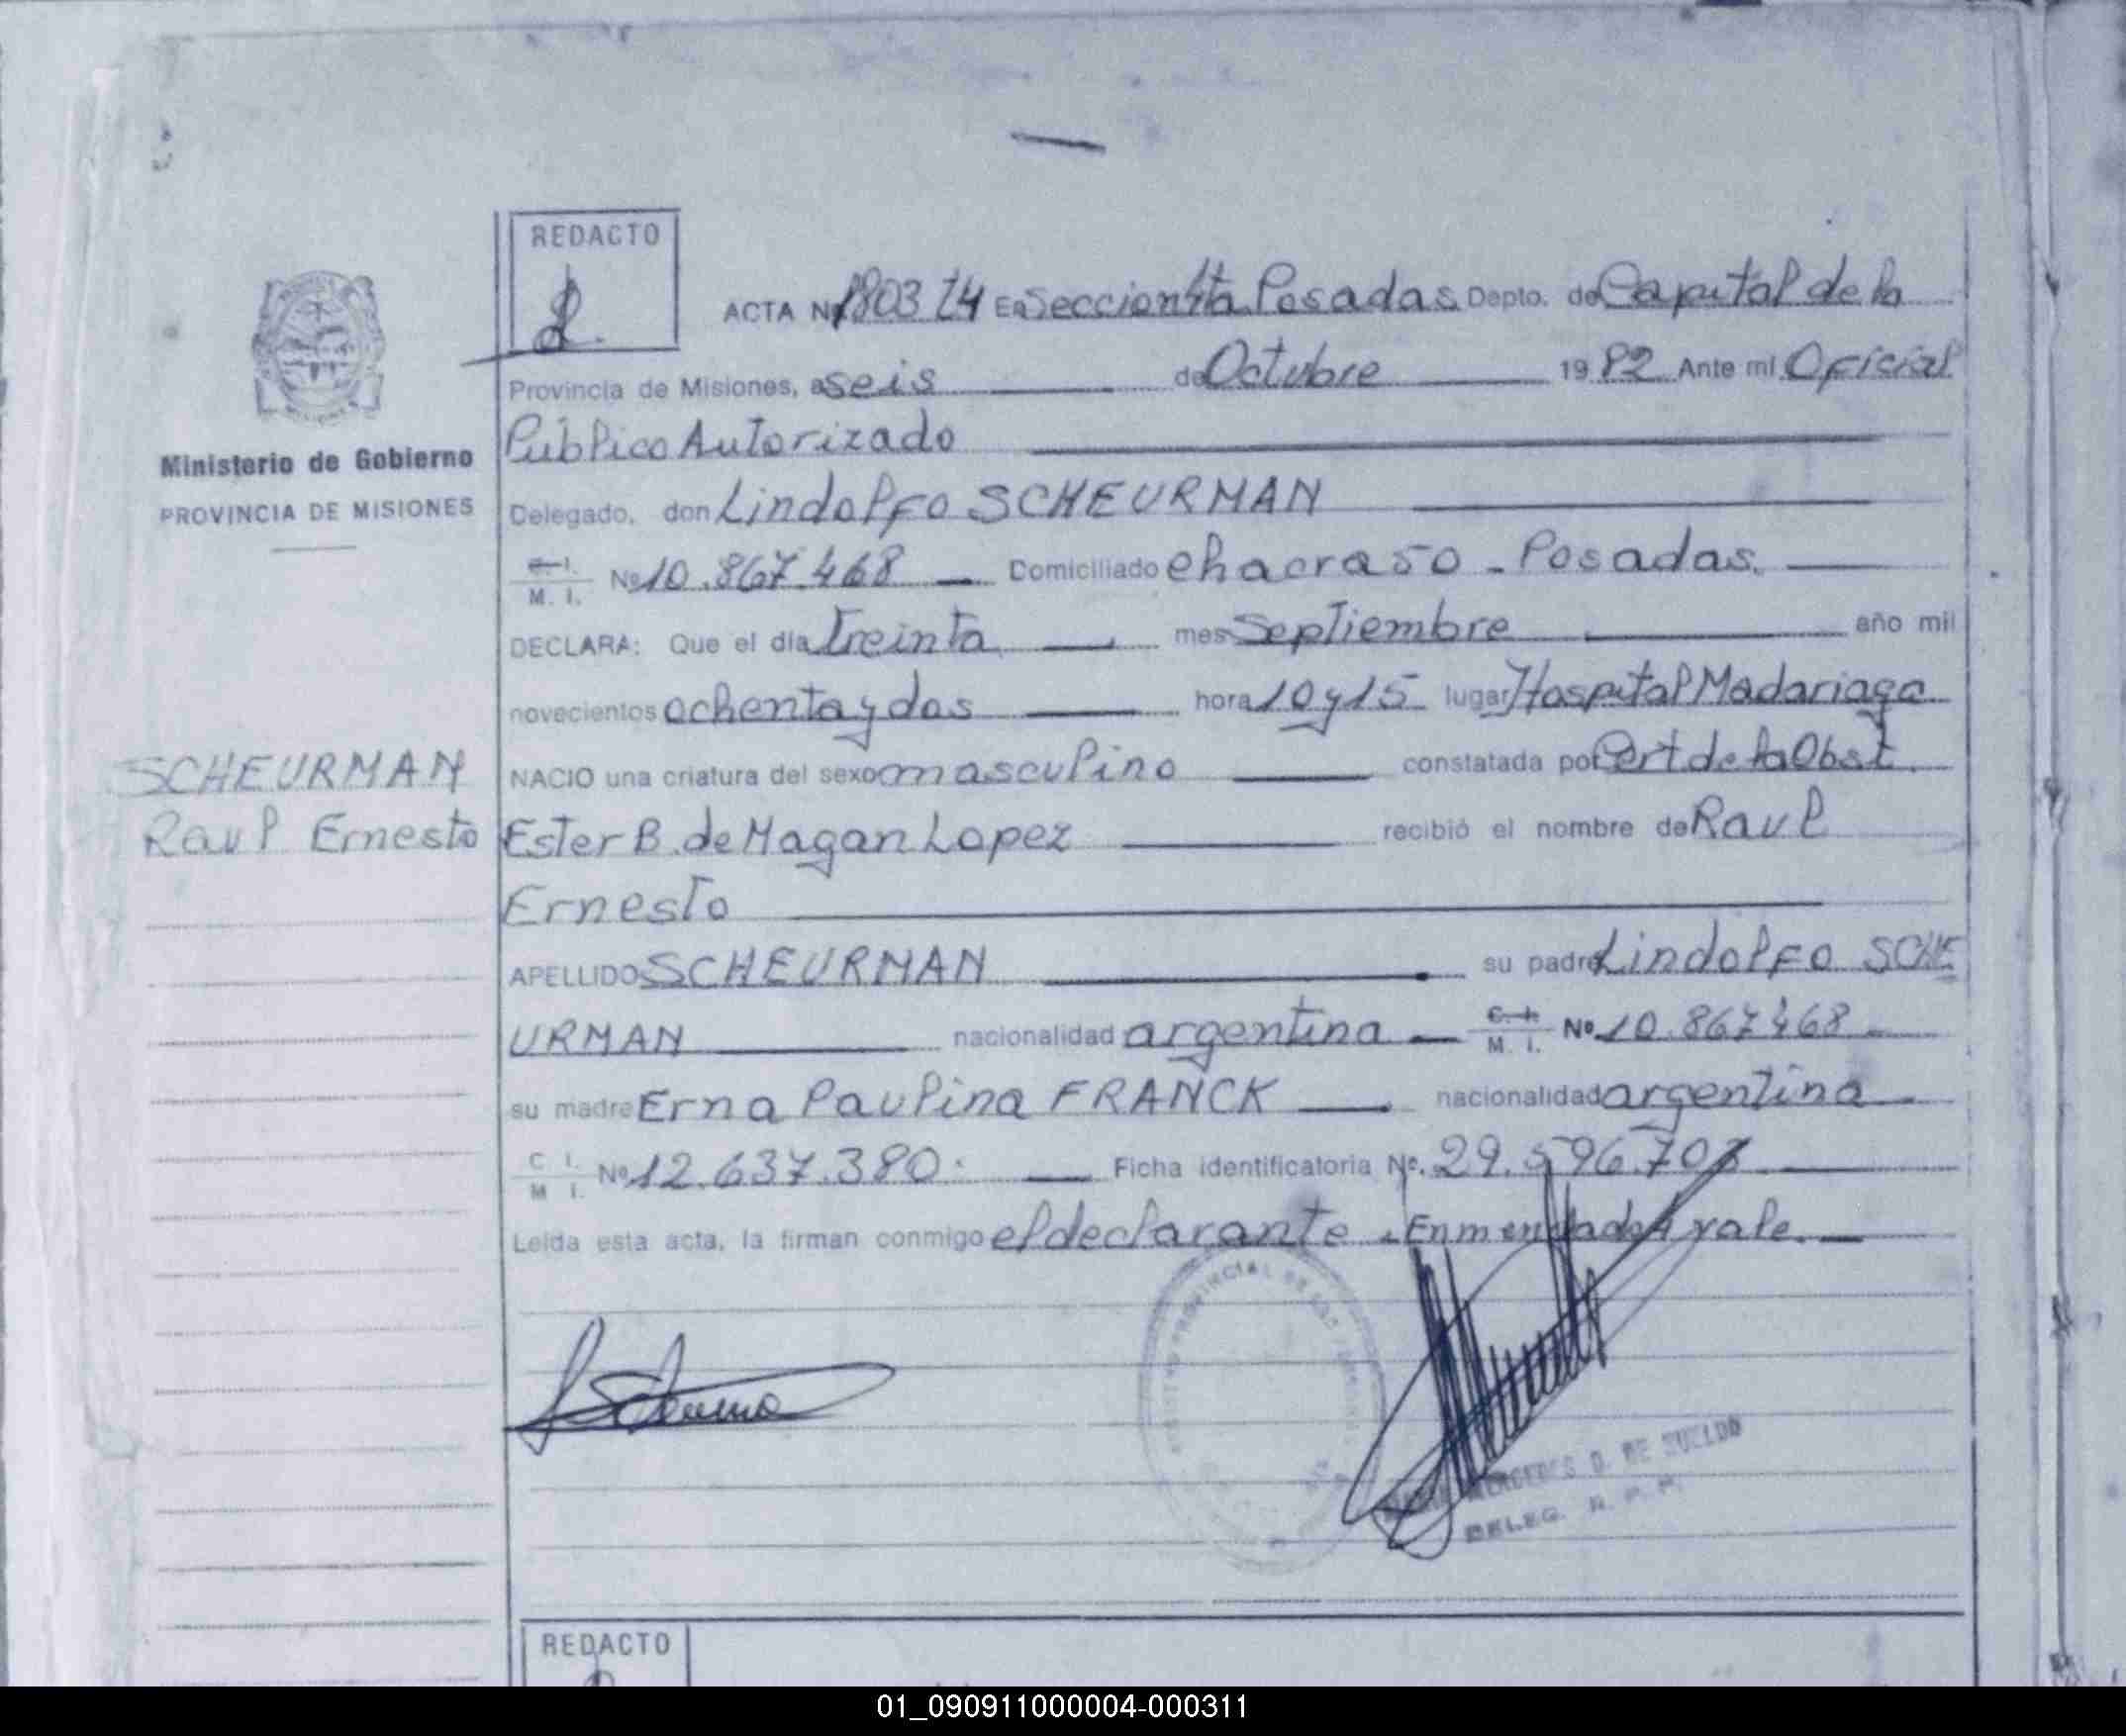 REDACTO
ACTA Nº 1803 T4 En Seccion 4ta Posadas Depto. de Capital de la
Provincia de Misiones, a seis de Octubre 1982 Ante mi Oficial
Público Autorizado
Ministerio de Gobierno
PROVINCIA DE MISIONES
Delegado, don Lindolfo SCHEURMAN
C. I. M. I. Nº 10.867.468 Domiciliado chacra 50 - Posadas.
DECLARA: Que el día treinta mes Septiembre año mil
novecientos ochenta y dos hora 10 y 15 lugar Hospital Madariaga
SCHEURMAN
Raul Ernesto
NACIO una criatura del sexo masculino constatada por Cert de la Obst.
Ester B. de Magan Lopez recibió el nombre de Raul
Ernesto
APELLIDO SCHEURMAN su padre Lindolfo SCHE
URMAN nacionalidad argentina C. I. M. I. Nº 10.867.468
su madre Erna Paulina FRANCK nacionalidad argentina
C I. M I. Nº 12.637.380. Ficha identificatoria Nº. 29.596.70
Leída esta acta, la firman conmigo el declarante - Enmendado vale.
DE SUELDO
DELEG.
REDACTO
01_090911000004-000311